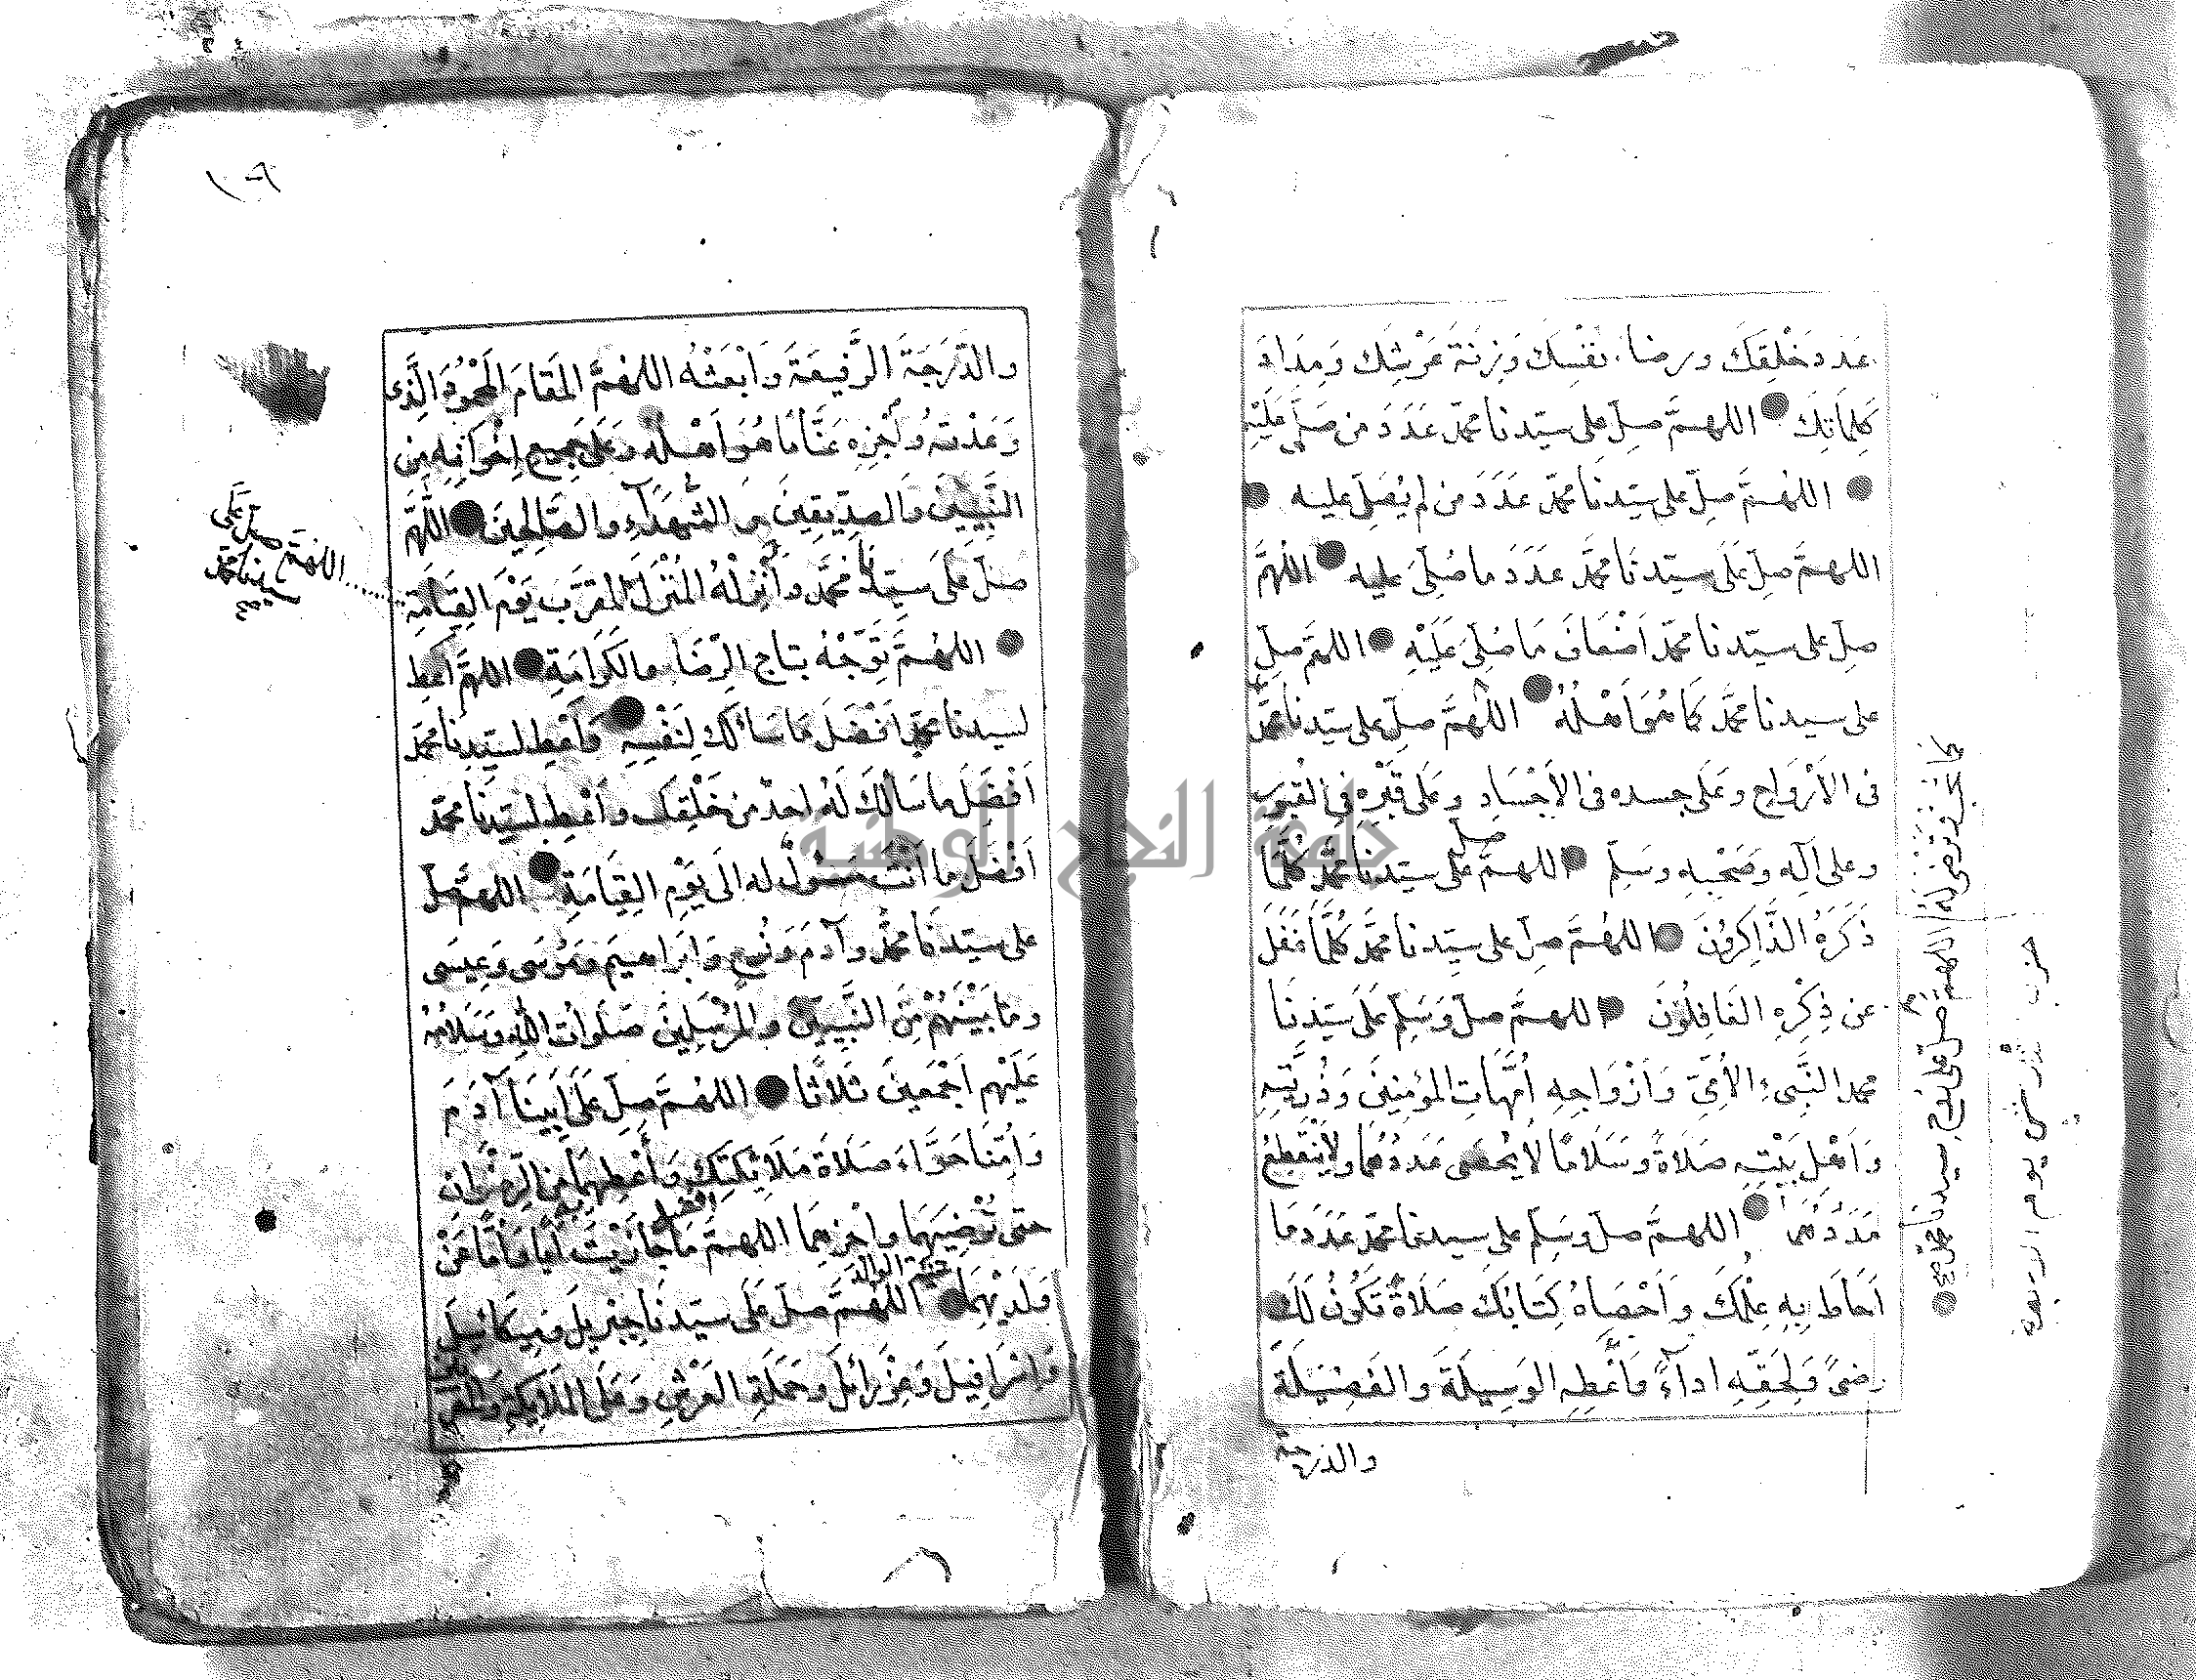 عَدَدَ خَلْقِكَ وَرِضَا نَفْسِكَ وَزِنَةَ عَرْشِكَ وَمِدَادَ
كَلِمَاتِكَ اللهمَّ صلِّ على سيّدنا محمّد عَدَدَ مَن صَلَّى عَلَيْهِ
اللهمَّ صلِّ على سيّدنَا محمّد عَدَدَ من لم يُصَلِّ عليه
اللهمَّ صلِّ عَلَى سيّدنَا محمَّد عَدَدَ ما صُلِّيَ عليه اللهمَّ
صلِّ على سيّدنا محمّد اَضْعَافَ مَا صُلِّيَ عَلَيْهِ اللهمَّ صلِّ
على سيدنا محمَّد كَمَا هُوَ اَهْلُهُ اللهمَّ صلِّ على سيّدنا محمَّد
فى الاَرْوَاحِ وعَلَى جسده فى الاَجْسَادِ وعَلَى قَبْرِه فِى القُبُورِ
وعلى آلِه وصَحْبِهِ وسَلِّم اللهمَّ صلِّ على سيّدنَا محمَّد كُلَّمَا
ذَكَرَهُ الذَّاكِرُونَ اللهُمَّ صلِّ على سيِّدنا محمَّد كُلَّمَا غَفَلَ
عن ذِكْرِهِ الغَافِلُونَ اللهمَّ صلِّ وَسَلِّم عَلَى سَيّدِنَا
محمد النَّبِىّ الاُمِّىِّ وَاَزْوَاجِهِ اُمَّهَاتِ المُؤمِنِينَ وَذُرِّيَّتِهِ
وَاَهْلِ بَيْتِهِ صَلَاةً وَسَلَامًا لَا يُحْصَى عَدَدُهُمَا وَلَا يَنْقَطِعُ
مَدَدُهُمَا اللهمَّ صلِّ وسَلِّم على سيدنا محمّد عَدَدَ مَا
اَحَاطَ بِهِ عِلْمُكَ وَاَحْصَاهُ كِتَابُكَ صَلَاةً تَكُونُ لَكَ
رضىً وَلِحَقِّهِ اداءً وَاَعْطِهِ الوَسِيلَةَ والفَضِيلَةَ
والدرجة
اللهم صل على روح سيدنا محمد
حزب يوم الاربعة
١٩
والدَّرَجَةَ الرَّفِيعَةَ وَابْعَثْهُ اللهمَّ المَقَامَ المَحْمُودَ الَّذِى
وَعَدْتَهُ وَاجْزِهِ عَنَّا مَا هُوَ اَهْلُهُ وعَلَى جَمِيعِ اِخْوَانِهِ مِن
النَّبِيِّينَ وَالصِدِّيقِينَ والشُّهَدَآءِ والصَّالِحِينَ اللهُمَّ
صلِّ عَلَى سيّدنَا محمَّد وأَنْزِلْهُ المُنْزَلَ المُقرَّبَ يَوْمَ القِيَامَةِ
اللهُمَّ تَوِّجْهُ بتاجِ الرِّضَا والكَرَامَةِ اللهمَّ أَعْطِ
لسيدنا محمّد اَفْضَلَ مَا سَاَلَكَ لِنَفْسِهِ وَأعْطِ لسيّدِنَا محمّد
اَفْضَلَ ما سَاَلَكَ لَهُ احدٌ من خَلْقِكَ وأَعْطِ لسيّدِنَا محمّد
اَفْضَلَ ما اَنْتَ مَسْؤُلٌ له الَى يَوْمِ القِيَامَةِ اللهمَّ صلِّ
على سيّدنَا محمَّد وآدَمَ وَنُوحٍ وَاِبْرَاهِيمَ ومُوسَى وَعِيسَى
ومَا بَيْنَهُمْ مِنَ النَّبِيّينَ والمُرْسَلِينَ صَلَواتُ اللهِ وَسَلَامُهُ
عَلَيْهِم اَجْمَعِينَ ثلَاثًا اللهُمَّ صلِّ عَلَى اَبِينَا آدَمَ
وَاُمِّنَا حَوَّاءَ صَلَاةَ مَلَائِكَتِكَ وَأَعْطِهِمَا مِنَ الرِّضْوَانِ
حتى تُرْضِيَهُمَا واجْزِهِمَا اللهمَّ مَا جَازَيْتَ اَبًا وَاُمًّا عَنْ
وَلَدَيْهِمَا اللهُمَّ صلِّ عَلَى سيّدنَا جِبْرِيلَ وَمِيكَائِيلَ
وَاِسْرَافِيلَ وَعِزْرَائِلَ وحَمَلَةِ العَرْشِ وَعَلَى المَلَائِكَةِ والمُقَرَّبِينَ
اللهمَّ صلِّ عَلَى
سيدنا محمّد
جامعة النجاح الوطنية